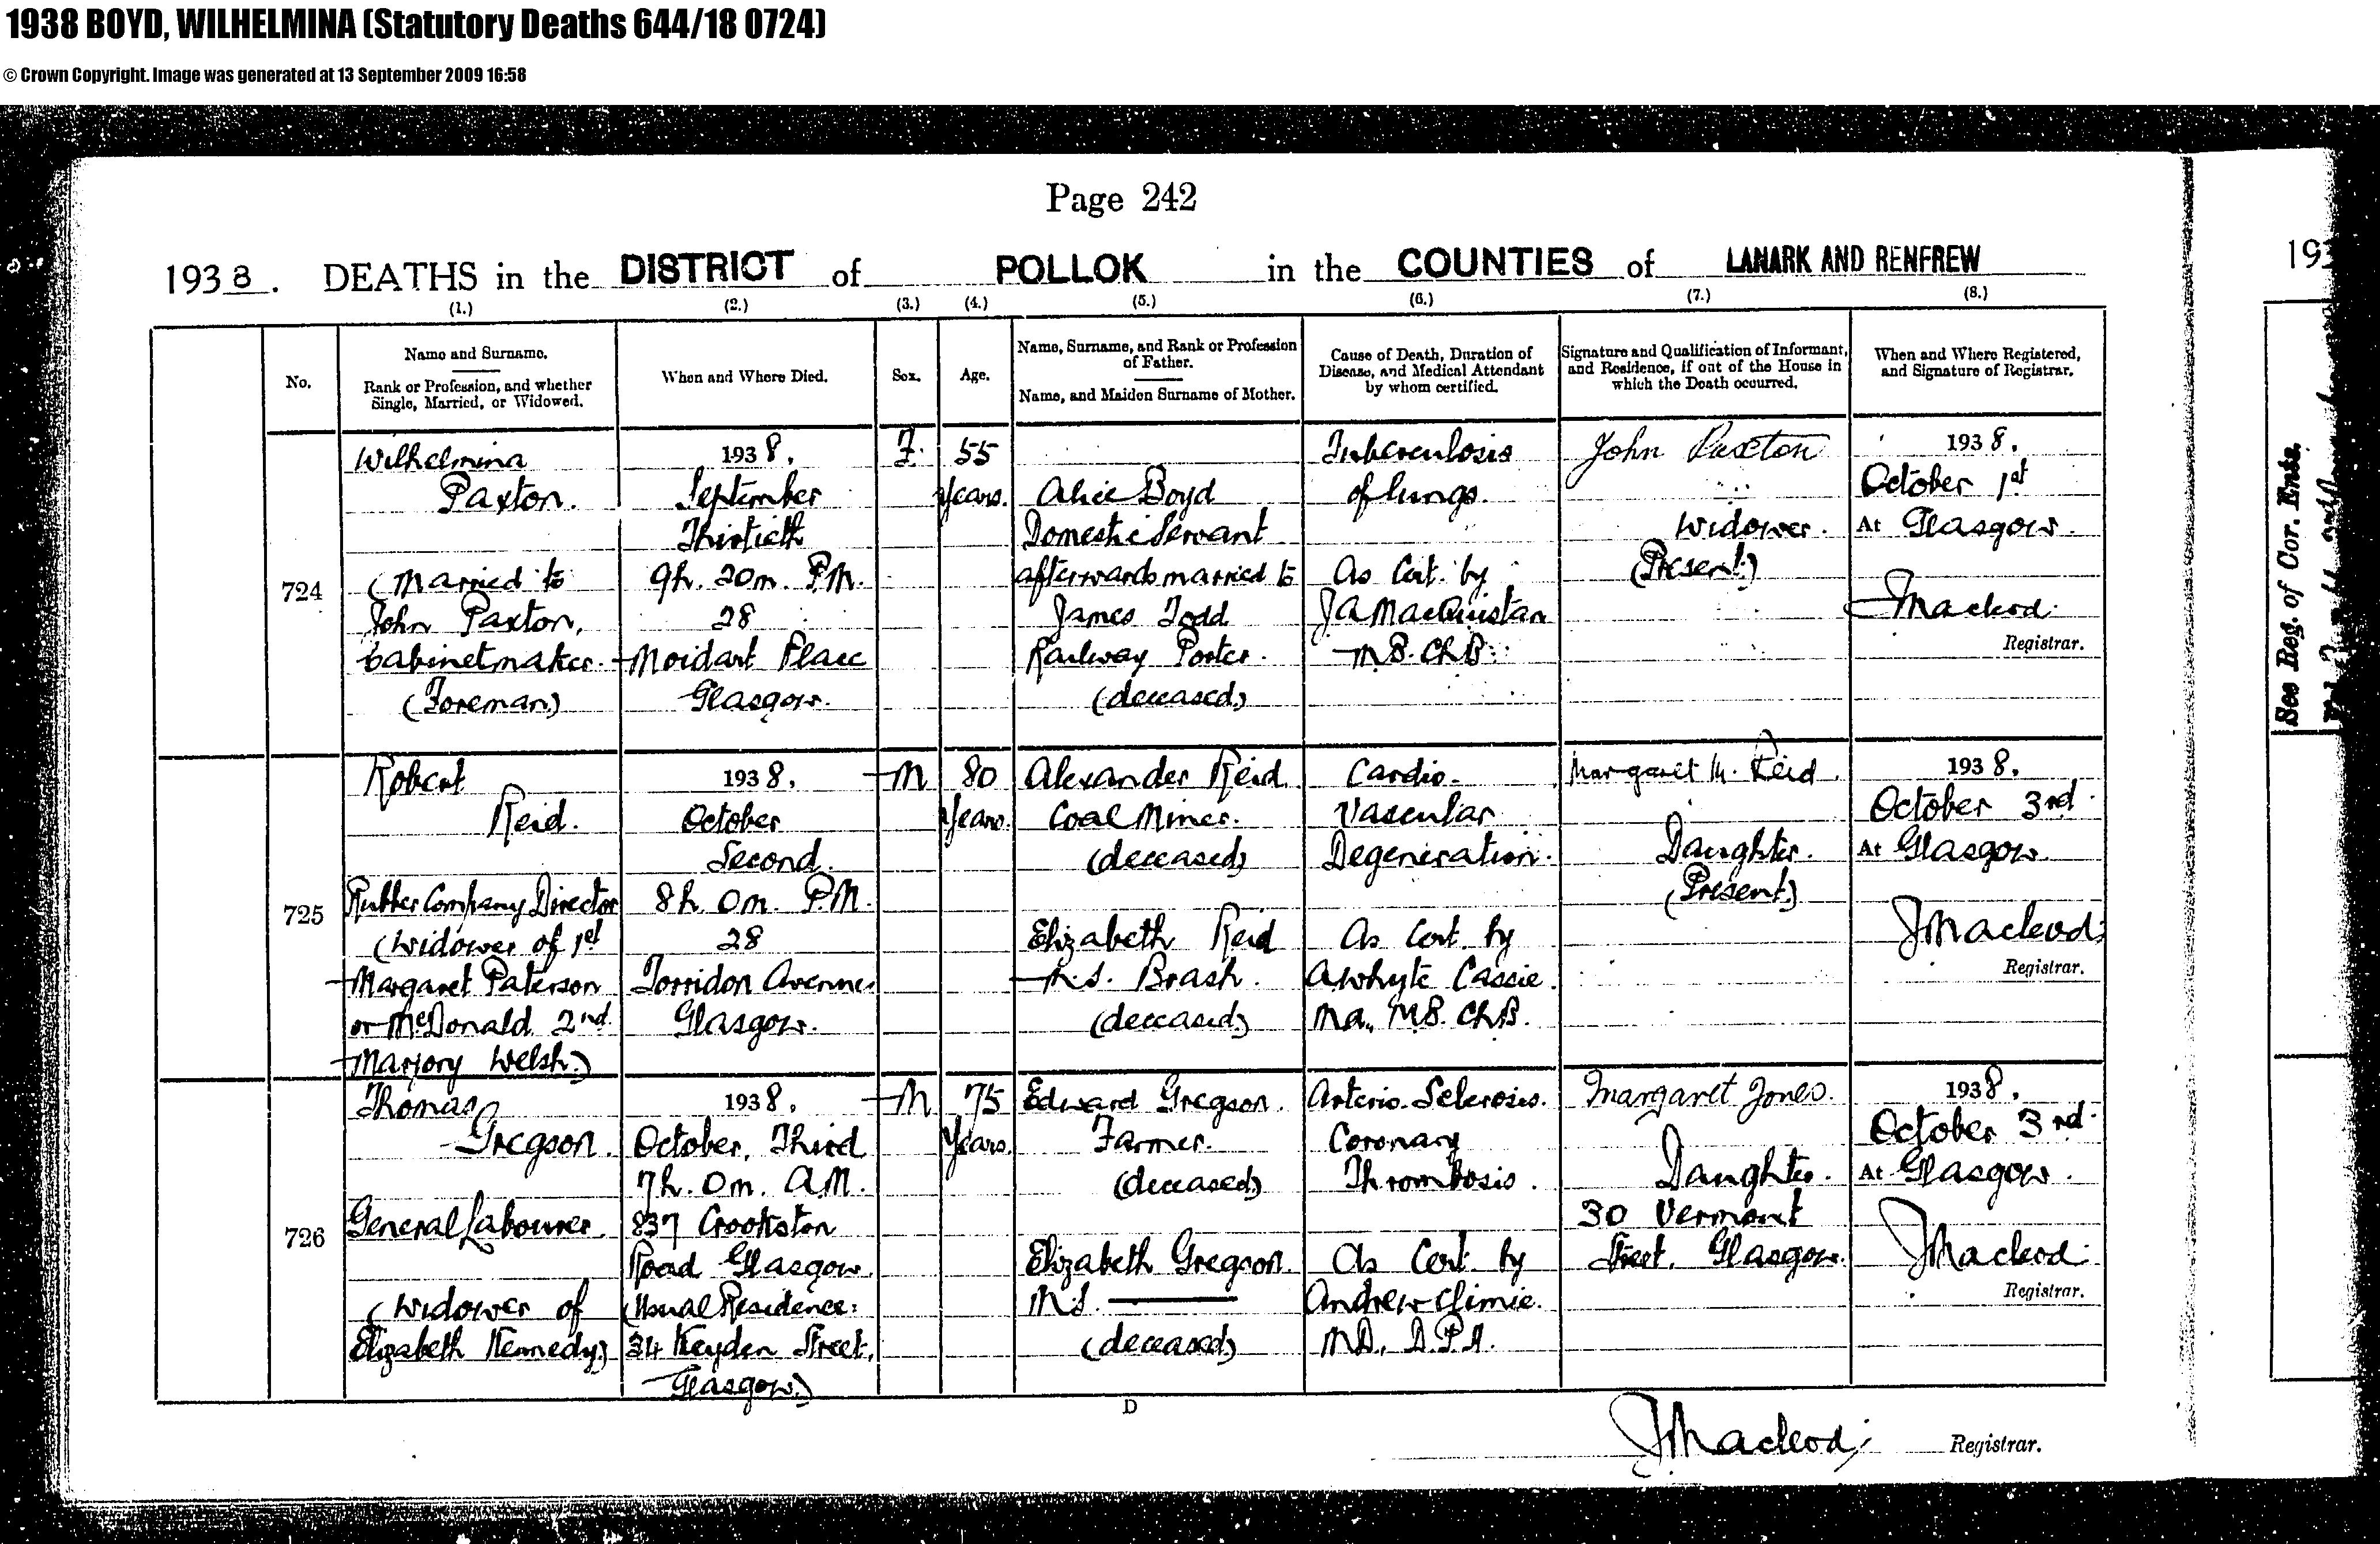 1938 BOYD, WILHELMINA (Statutory Deaths 644/18 0724)
© Crown Copyright. Image was generated at 13 September 2009 16:58
Page 242
1938. DEATHS in the DISTRICT of POLLOK in the COUNTIES of LANARK AND RENFREW
(1.) (2.) (3.) (4.) (5.) (6.) (7.) (8.)
No.
Name and Surname.
Rank or Profession, and whether
Single, Married, or Widowed.
When and Where Died.
Sex.
Age.
Name, Surname, and Rank or Profession
of Father.
Name, and Maiden Surname of Mother.
Cause of Death, Duration of
Disease, and Medical Attendant
by whom certified.
Signature and Qualification of Informant,
and Residence, if out of the House in
which the Death occurred.
When and Where Registered,
and Signature of Registrar.
724
Wilhelmina
Paxton.
(Married to
John Paxton,
Cabinetmaker
(Foreman)
1938.
September
Thirtieth
9h. 20m. P.M.
28
Moidart Place
Glasgow.
F.
55
Years.
Alice Boyd
Domestic Servant
afterwards married to
James Todd
Railway Porter.
(deceased)
Tuberculosis
of lungs.
As Cert. by
J A MacQuistan
M.B. Ch.B.
John Paxton
Widower.
(Present)
1938.
October 1st
At Glasgow.
J Macleod.
Registrar.
725
Robert
Reid.
Rubber Company Director
(Widower of 1st
Margaret Paterson
or McDonald 2nd
Marjory Welsh.)
1938.
October
Second.
8h. 0m. P.M.
28
Torridon Avenue
Glasgow.
M
80
Years.
Alexander Reid
Coal Miner.
(deceased)
Elizabeth Reid
M.S. Brash.
(deceased)
Cardio-
Vascular
Degeneration.
As Cert. by
A Whyte Cassie.
M.A., M.B. Ch.B.
Margaret M. Reid.
Daughter.
(Present.)
1938.
October 3rd.
At Glasgow
J Macleod.
Registrar.
726
Thomas
Gregson.
General Labourer.
(Widower of
Elizabeth Kennedy)
1938.
October, Third
7h. 0m. A.M.
837 Crookston
Road Glasgow.
(Usual Residence:
34 Keyden Street,
Glasgow.)
M
75
Years.
Edward Gregson.
Farmer.
(deceased)
Elizabeth Gregson.
M.S. ———
(deceased)
Arterio-Sclerosis.
Coronary
Thrombosis.
As Cert. by
Andrew Climie.
M.D., D.P.H.
Margaret Jones.
Daughter.
30 Vermont
Street, Glasgow.
1938.
October 3rd.
At Glasgow.
J Macleod.
Registrar.
D
J Macleod, Registrar.
193
See Reg. of Cor. Ents.